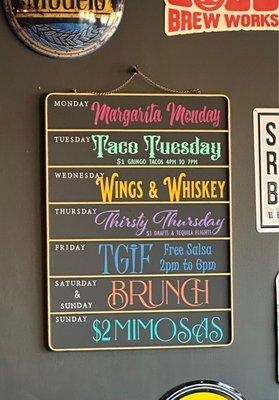 Modelo
BREW WORKS
MONDAY
Margarita Monday
TUESDAY
Taco Tuesday
$1 GRINGO TACOS 4PM TO 7PM
WEDNESDAY
WINGS & WHISKEY
THURSDAY
Thirsty Thursday
$3 DRAFTS & TEQUILA FLIGHTS
FRIDAY
TGIF
Free Salsa
2pm to 6pm
SATURDAY
&
SUNDAY
BRUNCH
SUNDAY
$2 MIMOSAS
S
R
B